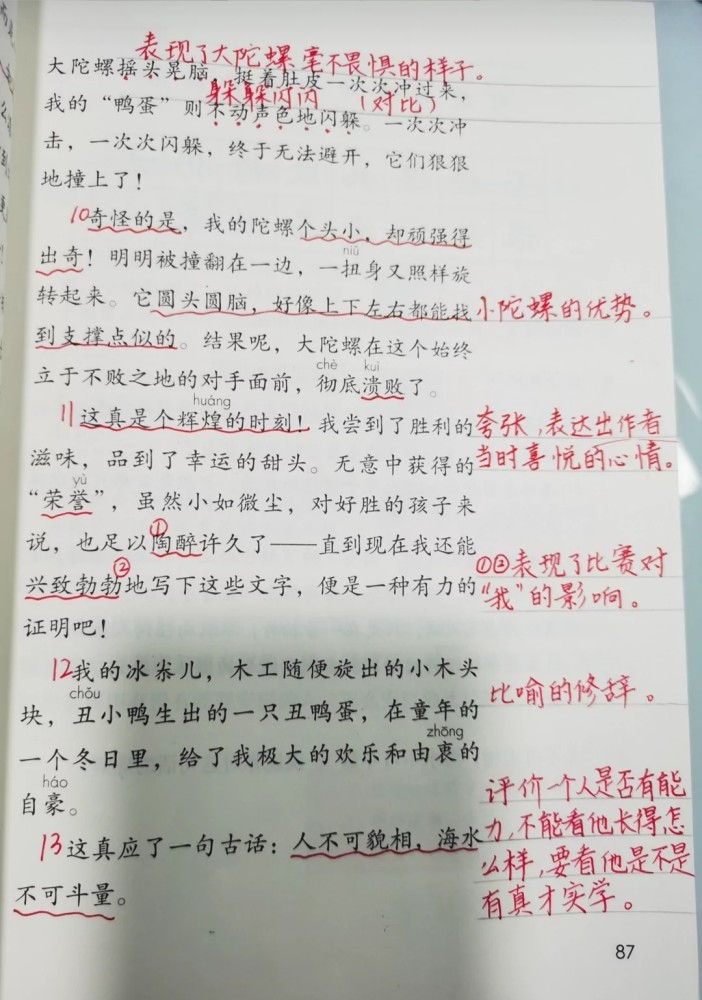 表现了大陀螺毫不畏惧的样子。
大陀螺摇头晃脑，挺着肚皮一次次冲过来，
躲躲闪闪 （对比）
我的“鸭蛋”则不动声色地闪躲。一次次冲
击，一次次闪躲，终于无法避开，它们狠狠
地撞上了！
10奇怪的是，我的陀螺个头小，却顽强得
niǔ
出奇！明明被撞翻在一边，一扭身又照样旋
转起来。它圆头圆脑，好像上下左右都能找
小陀螺的优势。
到支撑点似的。结果呢，大陀螺在这个始终
chè kuì
立于不败之地的对手面前，彻底溃败了。
huáng
11这真是个辉煌的时刻！我尝到了胜利的
夸张，表达出作者
滋味，品到了幸运的甜头。无意中获得的
当时喜悦的心情。
yù
“荣誉”，虽然小如微尘，对好胜的孩子来
①
说，也足以陶醉许久了——直到现在我还能
②
兴致勃勃地写下这些文字，便是一种有力的
①②表现了比赛对
“我”的影响。
证明吧！
12我的冰尜儿，木工随便旋出的小木头
chǒu
块，丑小鸭生出的一只丑鸭蛋，在童年的
比喻的修辞。
zhōng
一个冬日里，给了我极大的欢乐和由衷的
háo
自豪。
13这真应了一句古话：人不可貌相，海水
不可斗量。
评价一个人是否有能
力，不能看他长得怎
么样，要看他是不是
有真才实学。
87